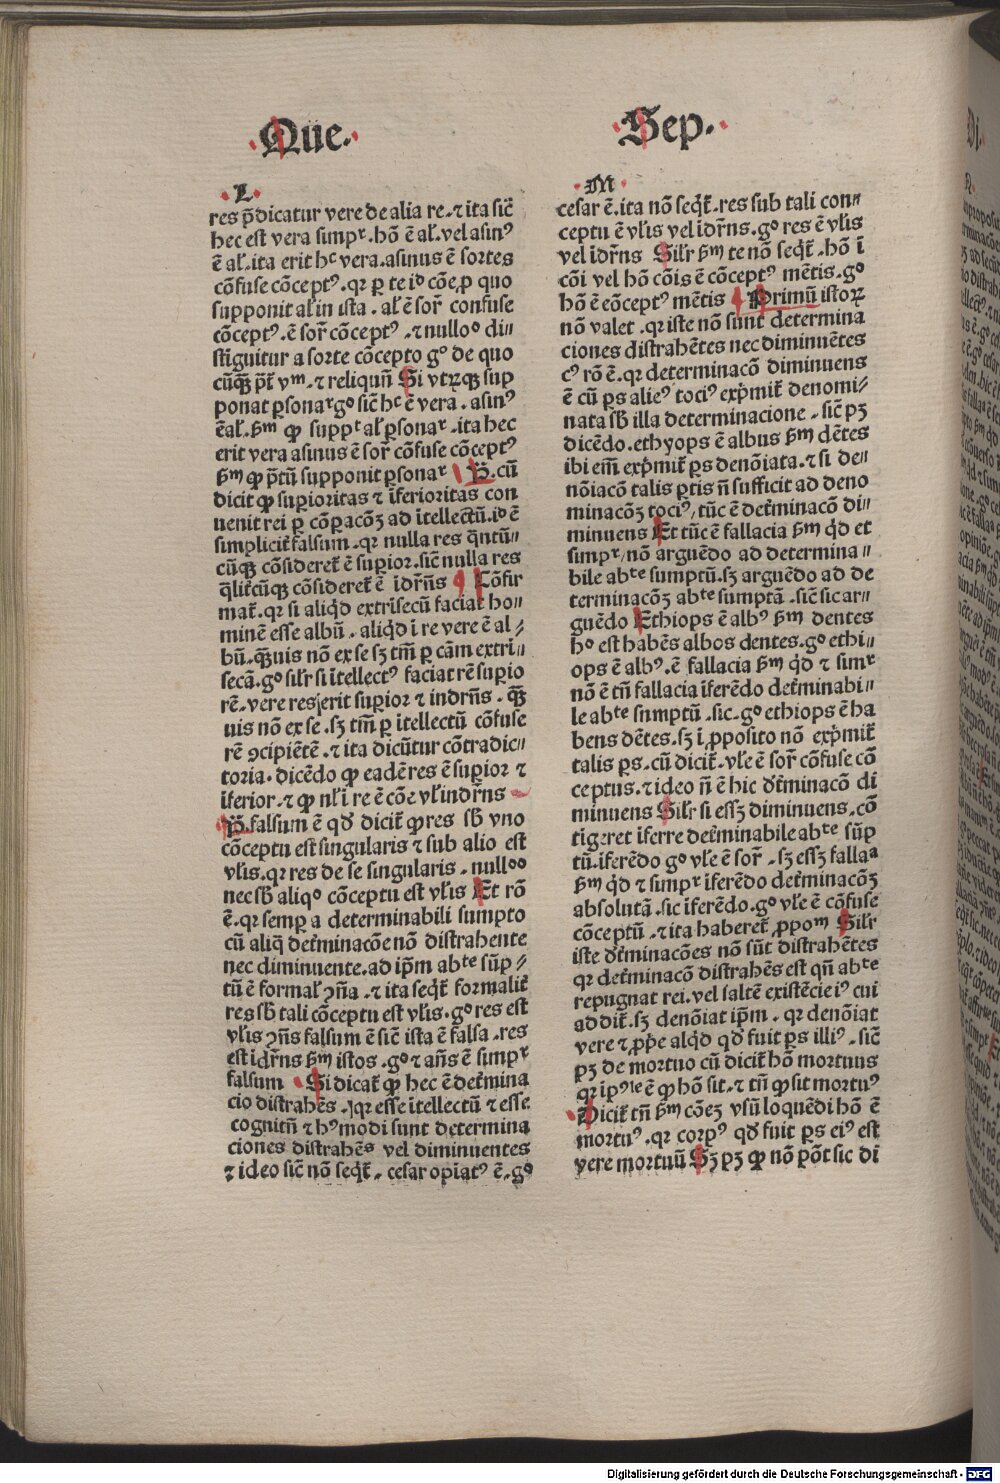 Que.
Sep.
L
res p̄dicatur vere de alia re. ⁊ ita sic̄
hec est vera simpʳ. hō ē al̄. vel asinꝰ
ē al̄. ita erit hᶜ vera. asinus ē sortes
cōfuse cōceptꝰ. qr ꝑ te iᵒ cōe, ꝓ quo
supponit al̄ in ista . al̄ ē sor̄ confuse
cōceptꝰ . ē sor̄ cōceptꝰ . ⁊ nulloᵒ di〃
stīguitur a sorte cōcepto gᵒ de quo
cūqꝫ p̄t̄ vᵐ. ⁊ reliquū Si vtrūqꝫ sup
ponat ꝑsonaʳ gᵒ sic̄ hᶜ ē vera . asinꝰ
ē al̄. ẜᵐ ꝙ suppᵗ al̄ ꝑsonaʳ . ita hec
erit vera asinus ē sor̄ cōfuse cōceptꝰ
ẜᵐ ꝙ p̄tū supponit ꝑsonaʳ P̄. cū
dicit ꝙ suꝑioritas ⁊ īferioritas con
uenit rei ꝑ cōꝑacōꝫ ad ītellectū. iᵒ ē
simplicit̄ falsum . qr nulla res q̄ntū〃
cūqꝫ cōsideret̄ ē suꝑior. sic̄ nulla res
q̄lit̄cūqꝫ cōsideret̄ ē īdr̄n̄s Cōfir
mat̄. qr si aliq̇d extrīsecū faciat ho〃
minē esse albū . aliq̇d ī re vere ē al〃
bū. qꝫuis nō ex se sꝫ tm̄ ꝑ cām extrī〃
secā. gᵒ sil̄r si ītellectꝰ faciat rē suꝑio
rē. vere res erit suꝑior ⁊ indrn̄s . qꝫ
uis nō ex se . sꝫ tm̄ ꝑ itellectū cōfuse
rē ꝯcipiētē . ⁊ ita dicūtur cōtradic〃
toria. dicēdo ꝙ eadē res ē suꝑior ⁊
īferior. ⁊ ꝙ nl̄ ī re ē cōe vl̄ indr̄n̄s
P̄. falsum ē qd̄ dicit̄ ꝙ res sb̄ vno
cōceptu est singularis ⁊ sub alio est
vl̄is. qr res de se singularis . nulloᵒ
nec sb̄ aliqᵒ cōceptu est vl̄is Et rō
ē. qr semꝑ a determinabili sumpto
cū aliq̄ det̄minacōe nō distrahente
nec diminuente. ad ip̄m abᵗᵉ sūp〃
tū ē formal̄ ꝯn̄a . ⁊ ita seq̄t̄ formalit̄
res sb̄ tali cōceptu est vl̄is. gᵒ res est
vl̄is ꝯn̄s falsum ē sic̄ ista ē falsa . res
est īdr̄ns ẜᵐ istos . gᵒ ⁊ an̄s ē simpʳ
falsum Si dicat̄ ꝙ hec ē det̄mina
cio distrahēs . qr esse ītellectū ⁊ esse
cognitū ⁊ hꝰmodi sunt determina
ciones distrahēs vel diminuentes
⁊ ideo sic̄ nō seq̄t̄ . cesar opiatꝰ ē. gᵒ
M
cesar ē. ita nō seq̄t̄. res sub tali con〃
ceptu ē vl̄is vel īdr̄ns. gᵒ res ē vl̄is
vel īdr̄ns Sil̄r ẜᵐ te nō seq̄t̄ . hō ī
cōi vel hō cōis ē cōceptꝰ mētis. gᵒ
hō ē cōceptꝰ mētis Primū istoꝝ
nō valet . qr iste nō sunt determina
ciones distrahētes nec diminuētes
cꝰ rō ē. qr determinacō diminuens
ē cū ꝑs alieꝰ tociꝰ exp̄mit̄ denomi〃
nata sb̄ illa determinacione . sic̄ pꝫ
dicēdo. ethyops ē albus ẜᵐ dētes
ibi em̄ exp̄mit̄ ꝑs denōiata. ⁊ si de〃
nōiacō talis ꝑtis n̄ sufficit ad deno
minacōꝫ tociꝰ, tūc ē det̄minacō di〃
minuens Et tūc ē fallacia ẜᵐ q̇d et
simpʳ, nō arguēdo ad determina〃
bile abᵗᵉ sumptū. sꝫ arguēdo ad de
terminacōꝫ abᵗᵉ sumptā . sic̄ sic ar〃
guēdo Ethiops ē albꝰ ẜᵐ dentes
hᵒ est habēs albos dentes. gᵒ ethi〃
ops ē albꝰ. ē fallacia ẜᵐ q̇d ⁊ simʳ
nō ē tn̄ fallacia īferēdo det̄minabi〃
le abᵗᵉ sumptū . sic. gᵒ ethiops ē ha
bens dētes. sꝫ ī ꝓposito nō exp̄mit̄
talis ꝑs. cū dicit̄. vl̄e ē sor̄ cōfuse cō
ceptus. ⁊ ideo n̄ ē hic det̄minacō di
minuens Sil̄r si essꝫ diminuens. cō
tigeret īferre det̄minabile abᵗᵉ sūp
tū. īferēdo gᵒ vl̄e ē sor̄ . sꝫ essꝫ fallaᵃ
ẜᵐ q̇d ⁊ simpʳ īferēdo det̄minacōꝫ
absolutā . sic īferēdo. gᵒ vl̄e ē cōfuse
cōceptū . ⁊ ita haberet̄ ꝓpoᵐ Sil̄r
iste det̄minacōes nō sūt distrahētes
qr det̄minacō distrahēs est qn̄ abᵗᵉ
repugnat rei. vel saltē existēcie iꝰ cui
addit̄. sꝫ denōiat ip̄m . qr denōiat
vere ⁊ ꝓp̄e alq̇d qd̄ fuit ꝑs illiꝰ . sic̄
pꝫ de mortuo cū dicit̄ hō mortuus
qr ipꝰ le ē ꝙ hō sit. ⁊ tn̄ ꝙ sit mortuꝰ
Dicit̄ tn̄ ẜᵐ cōeꝫ vsū loquēdi hō ē
mortuꝰ. qr corpꝰ qd̄ fuit ꝑs eiꝰ est
vere mortuū Sꝫ pꝫ ꝙ nō pōt sic di
Digitalisierung gefördert durch die Deutsche Forschungsgemeinschaft - DFG